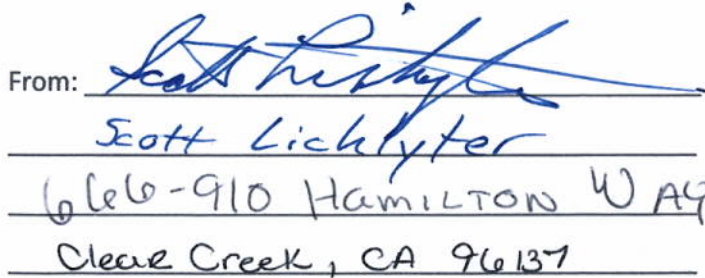 From: Scott Licklyter
Scott Licklyter
666-910 HAMILTON WAY
Clear Creek, CA 96137